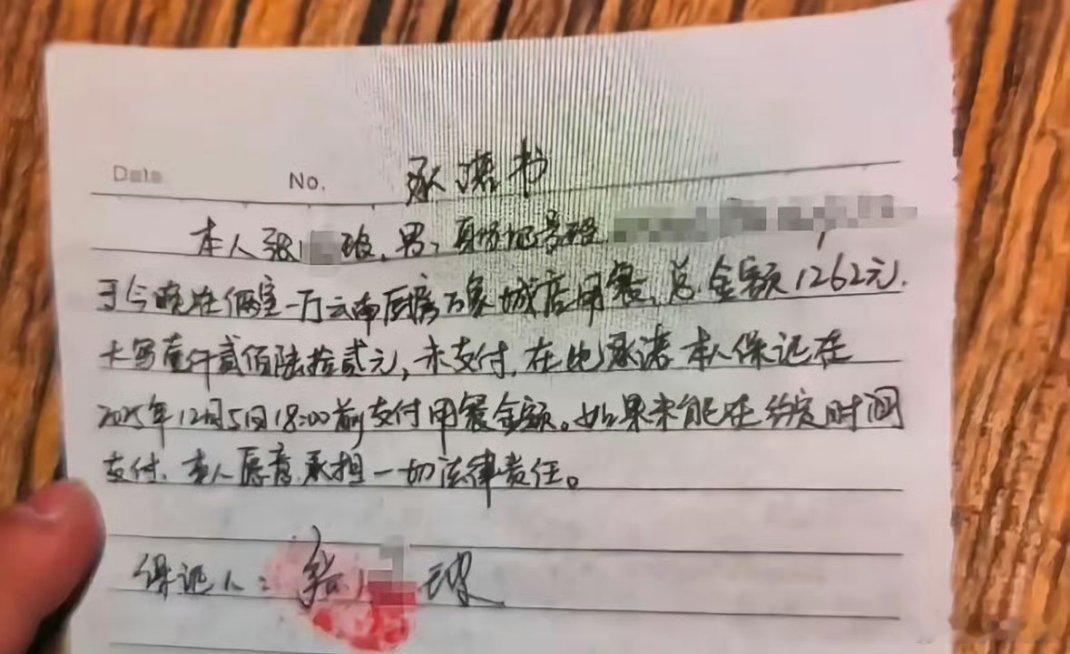 Date No. 承诺书
本人张 波，男，身份证号码
于今晚在俩室一厅云南厨房万象城店用餐，总金额1262元.
大写壹仟贰佰陆拾贰元，未支付，在此承诺本人保证在
2025年12月5日18:00前支付用餐金额。如果未能在约定时间
支付，本人愿意承担一切法律责任。
保证人：张 波